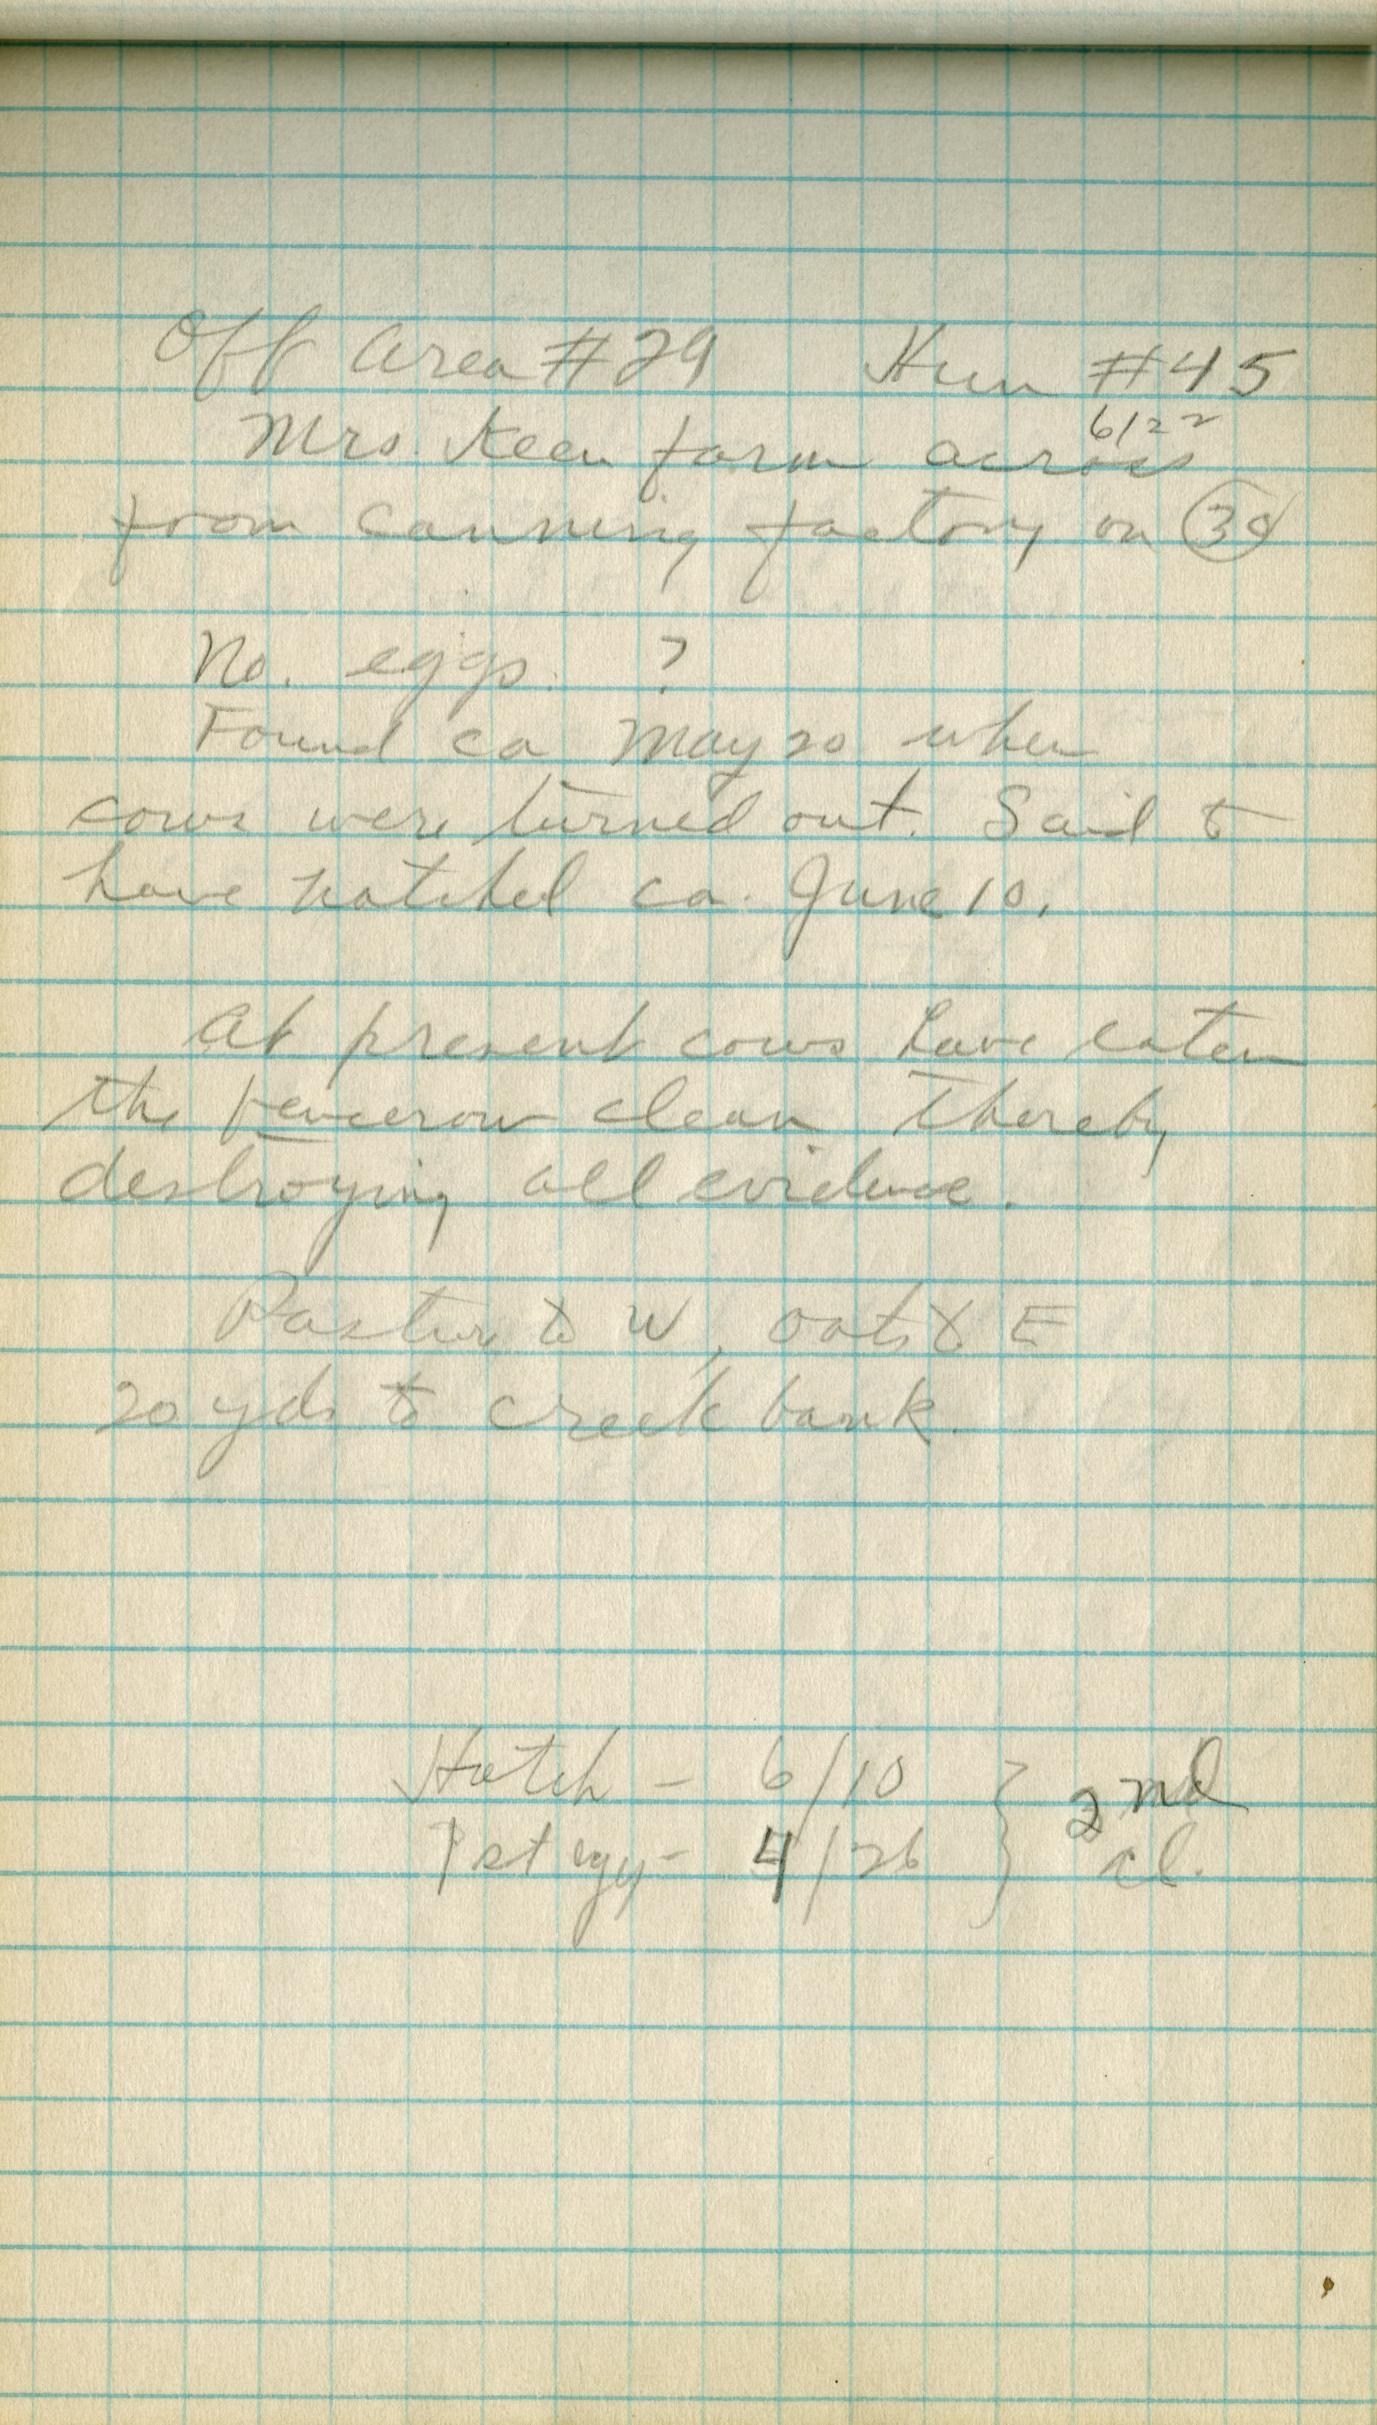 Off Area #29 Hun #45
6/22
Mrs. Keen farm across
from canning factory on 30
No. eggs. ?
Found ca May 20 when
cows were turned out. Said to
have hatched ca. June 10.
At present cows have eaten
the fencerow clean thereby
destroying all evidence.
Pasture to W, oats to E
20 yds to creek bank.
Hatch - 6/10 } 2nd
1st egg - 4/26 } cl.